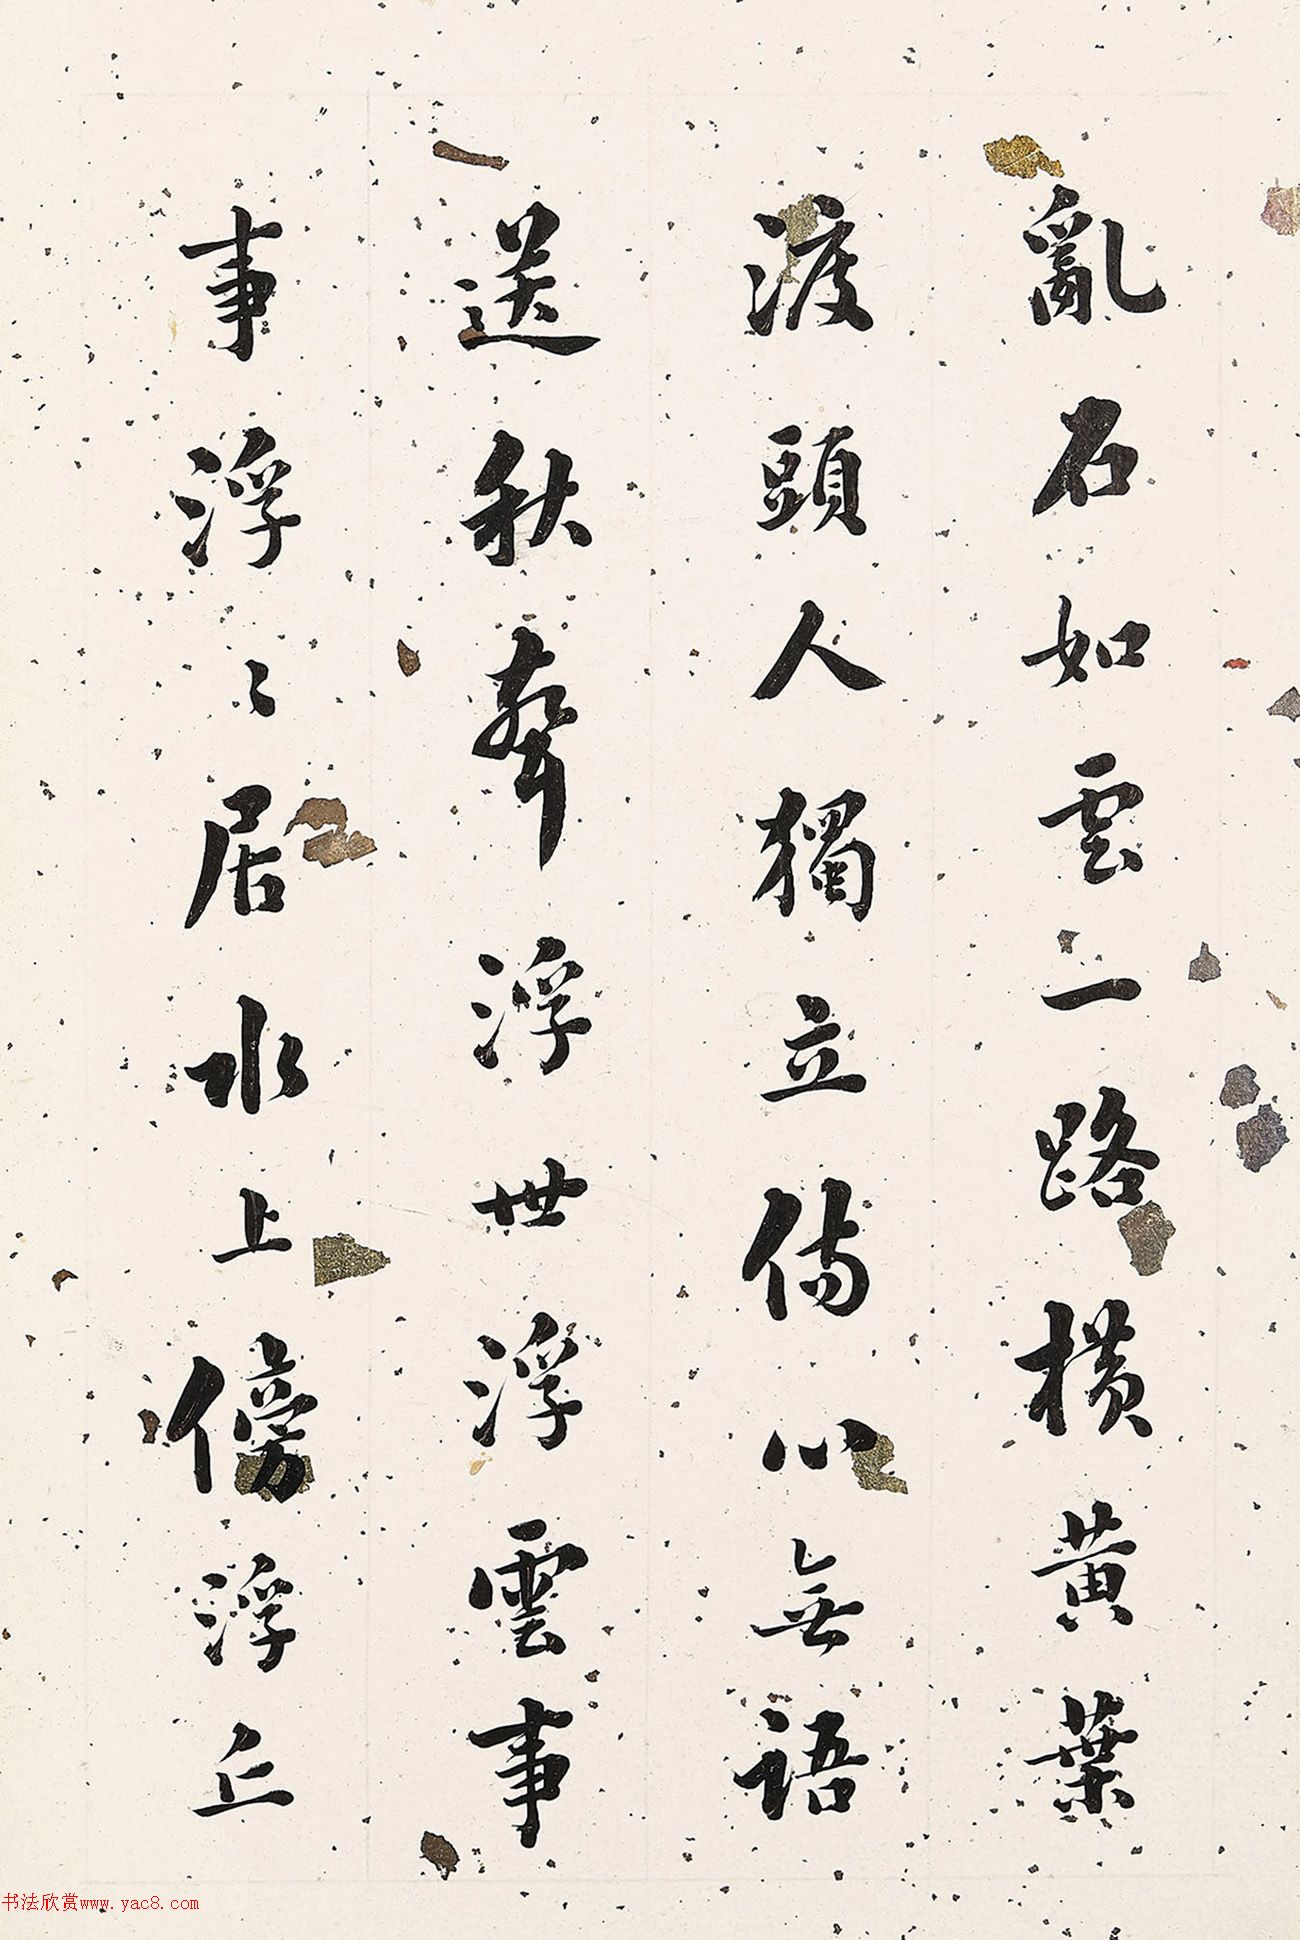 亂石如雲一路橫黃葉
渡頭人獨立傷心無語
送秋聲浮世浮雲事
事浮〻居水上傍浮丘
书法欣赏www.yac8.com